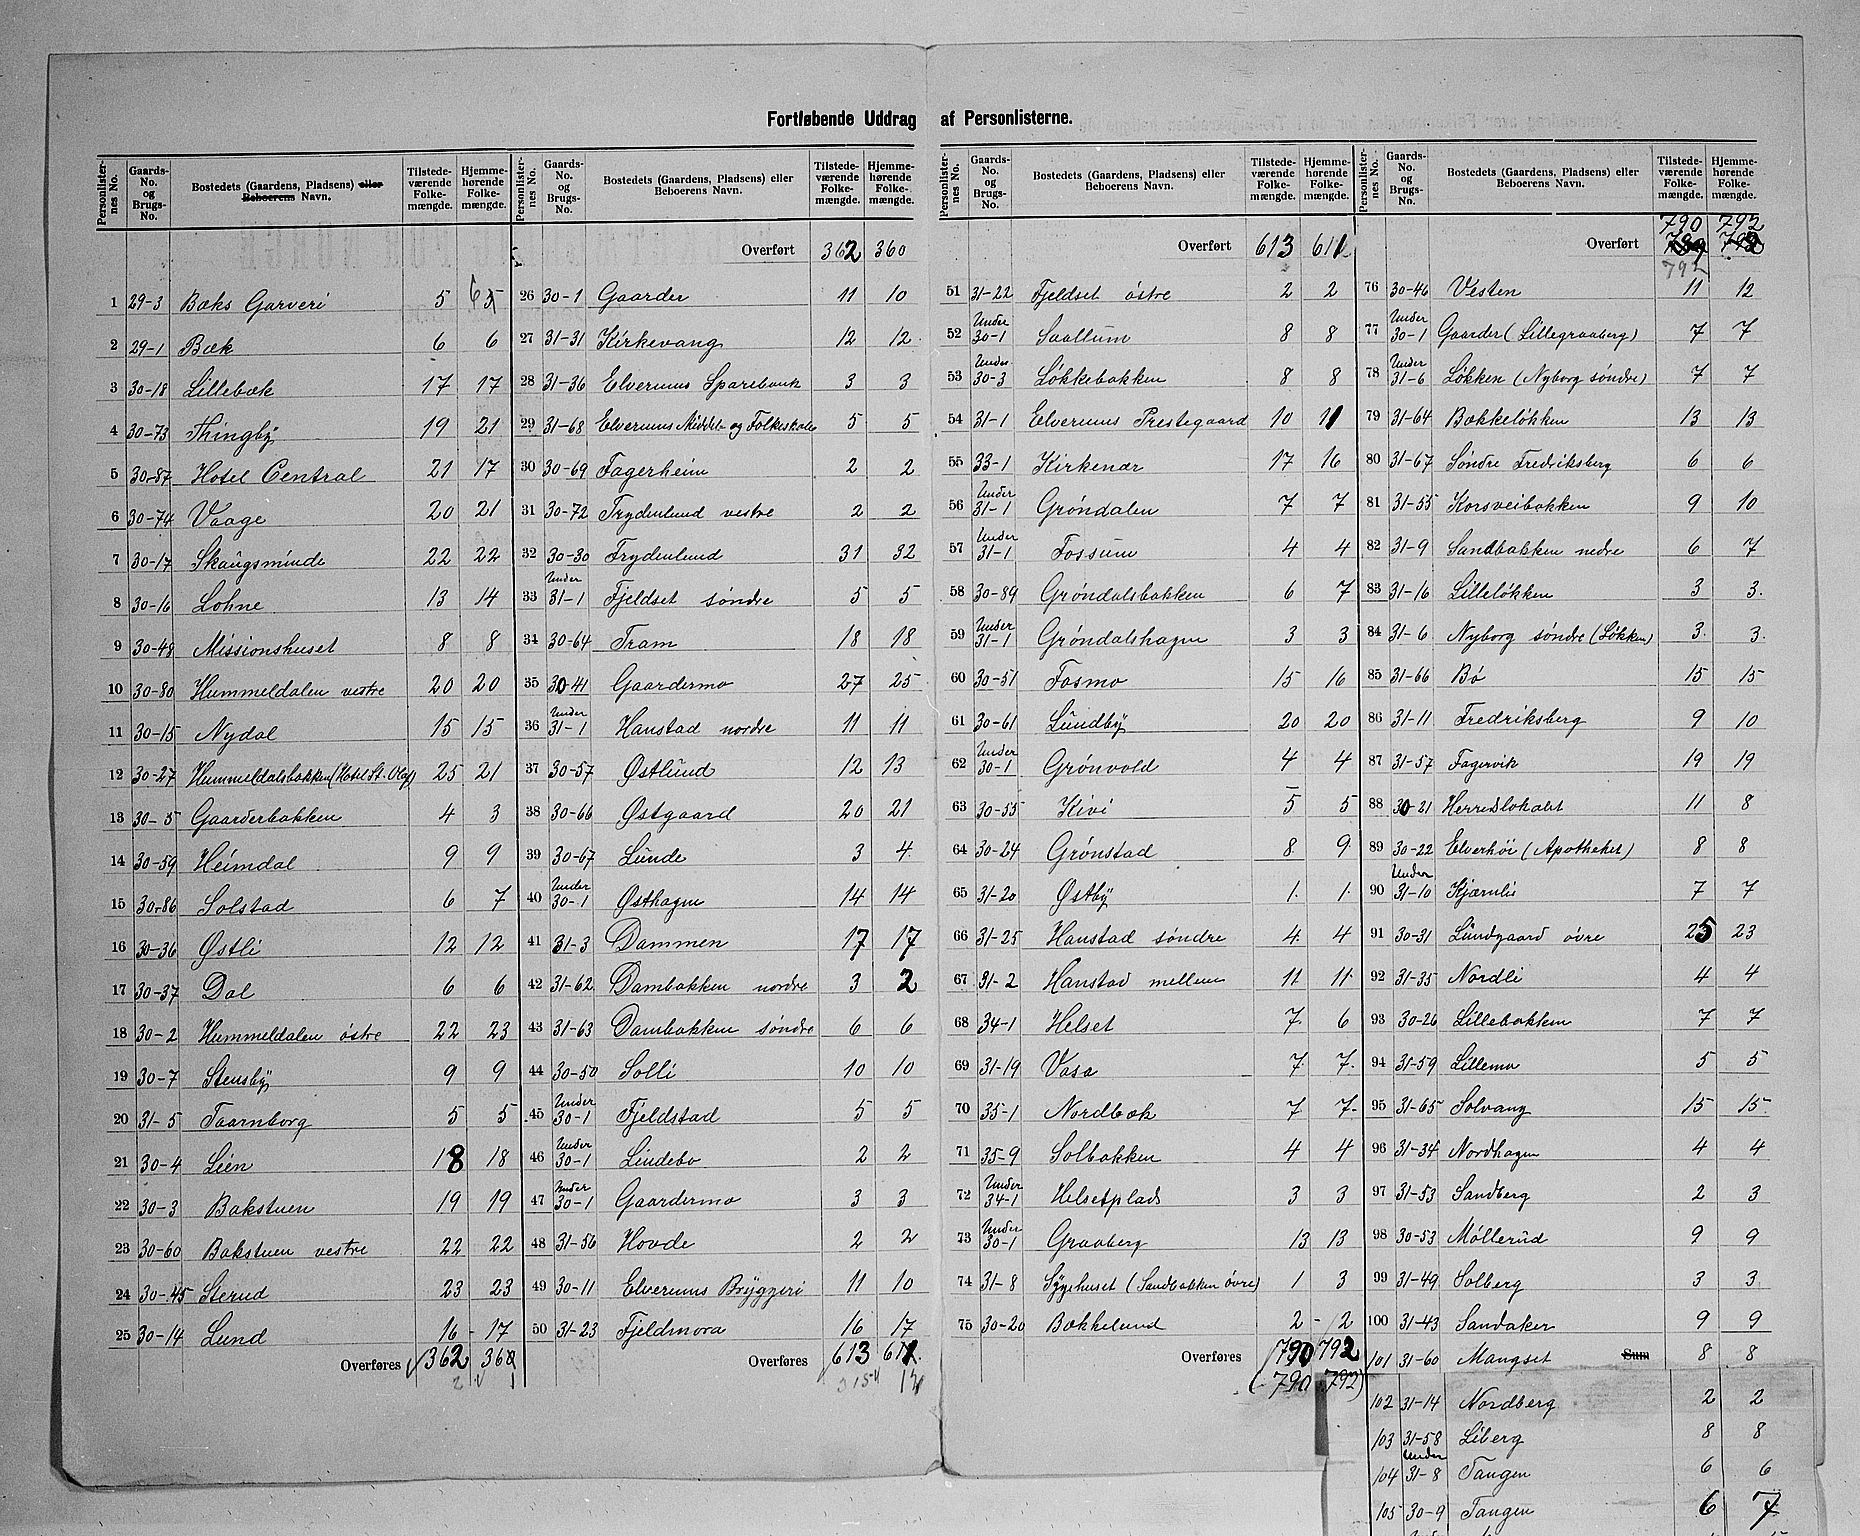 Fortløbende Uddrag af Personlisterne.
Personlister-nes No. | Gaards-No. og Brugs-No. | Bostedets (Gaardens, Pladsens) eller Beboerens Navn. | Tilstede-værende Folke-mængde. | Hjemme-hørende Folke-mængde.
1 29-3 Bæks Garveri 5 6
2 29-1 Bæk 6 6
3 30-18 Lillebæk 17 17
4 30-73 Thingby 19 21
5 30-87 Hotel Central 21 17
6 30-74 Vaage 20 21
7 30-17 Skaugsminde 22 22
8 30-16 Lohne 13 14
9 30-48 Missionshuset 8 8
10 30-80 Hummeldalen vestre 20 20
11 30-15 Nydal 15 15
12 30-27 Hummeldalsbakken (Hotel St. Olaf) 25 21
13 30-5 Gaarderbakken 4 3
14 30-59 Heimdal 9 9
15 30-86 Solstad 6 7
16 30-36 Østli 12 12
17 30-37 Dal 6 6
18 30-2 Hummeldalen østre 22 23
19 30-7 Stensby 9 9
20 31-5 Taarnborg 5 5
21 30-4 Lien 18 18
22 30-3 Bakstuen 19 19
23 30-60 Bakstuen vestre 22 22
24 30-45 Sterud 23 23
25 30-14 Lund 16 17
Overføres 362 360
Personlister-nes No. | Gaards-No. og Brugs-No. | Bostedets (Gaardens, Pladsens) eller Beboerens Navn. | Tilstede-værende Folke-mængde. | Hjemme-hørende Folke-mængde.
Overført 362 360
26 30-1 Gaarder 11 10
27 31-31 Kirkevang 12 12
28 31-36 Elverums Sparebank 3 3
29 31-68 Elverums Middel- og Folkeskole 5 5
30 30-69 Fagerheim 2 2
31 30-72 Frydenlund vestre 2 2
32 30-30 Frydenlund 31 32
33 Under 31-1 Fjeldset søndre 5 5
34 30-64 Fram 18 18
35 30-41 Gaardermo 27 25
36 Under 31-1 Hanstad nordre 11 11
37 30-57 Østlund 12 13
38 30-66 Østgaard 20 21
39 30-67 Lunde 3 4
40 Under 30-1 Østhagen 14 14
41 31-3 Dammen 17 17
42 31-62 Dambakken nordre 3 2
43 31-63 Dambakken søndre 6 6
44 30-50 Solli 10 10
45 Under 30-1 Fjeldstad 5 5
46 Under 30-1 Lindebo 2 2
47 Under 30-1 Gaardermo 3 3
48 31-56 Hovde 2 2
49 30-11 Elverums Bryggeri 11 10
50 31-23 Fjeldmora 16 17
Overføres 613 611
Personlister-nes No. | Gaards-No. og Brugs-No. | Bostedets (Gaardens, Pladsens) eller Beboerens Navn. | Tilstede-værende Folke-mængde. | Hjemme-hørende Folke-mængde.
Overført 613 611
51 31-22 Fjeldset østre 2 2
52 Under 30-1 Saaltum 8 8
53 Under 30-3 Løkkebakken 8 8
54 31-1 Elverums Prestegaard 10 11
55 33-1 Kirkenær 17 16
56 Under 31-1 Grøndalen 7 7
57 Under 31-1 Fossum 4 4
58 30-89 Grøndalsbakken 6 7
59 Under 31-1 Grøndalshagen 3 3
60 30-51 Fosmo 15 16
61 30-61 Lundby 20 20
62 Under 30-1 Grønvold 4 4
63 30-55 Kivi 5 5
64 30-24 Grønstad 8 9
65 31-20 Østby 1 1
66 31-25 Hanstad søndre 4 4
67 31-2 Hanstad mellem 11 11
68 34-1 Helset 7 6
69 31-19 Vasa 7 7
70 35-1 Nordbæk 7 7
71 35-9 Solbakken 4 4
72 Under 34-1 Helsetplads 3 3
73 Under 30-1 Graaberg 13 13
74 31-8 Sygehuset (Sandbakken øvre) 1 3
75 30-20 Bækkelund 2 2
Overføres 790 792
(790 792)
Personlister-nes No. | Gaards-No. og Brugs-No. | Bostedets (Gaardens, Pladsens) eller Beboerens Navn. | Tilstede-værende Folke-mængde. | Hjemme-hørende Folke-mængde.
Overført 790 792
76 30-46 Vesten 11 12
77 Under 30-1 Gaarder (Lillegraaberg) 7 7
78 Under 31-6 Løkken (Nyborg søndre) 7 7
79 31-64 Bækkeløkken 13 13
80 31-67 Søndre Fredriksberg 6 6
81 31-55 Korsveibakken 9 10
82 31-9 Sandbakken nedre 6 7
83 31-16 Lilleløkken 3 3
84 31-6 Nyborg søndre (Løkken) 3 3
85 31-66 Bø 15 15
86 31-11 Fredriksberg 9 10
87 31-57 Fagervik 19 19
88 30-21 Herredslokalet 11 8
89 30-22 Elverhøi (Apotheket) 8 8
90 Under 31-10 Kjærnlie 7 7
91 30-31 Lundgaard øvre 25 23
92 31-35 Nordli 4 4
93 30-26 Lillebakken 7 7
94 31-59 Lillemo 5 5
95 31-65 Solvang 15 15
96 31-34 Nordhagen 4 4
97 31-53 Sandberg 2 3
98 30-53 Møllerud 9 9
99 31-49 Solberg 3 3
100 31-43 Sandaker 9 9
101 31-60 Mangset Sum 8 8
102 31-14 Nordberg 2 2
103 31-58 Liberg 8 8
104 Under 31-8 Tangen 6 6
105 30-9 Tangen 6 7